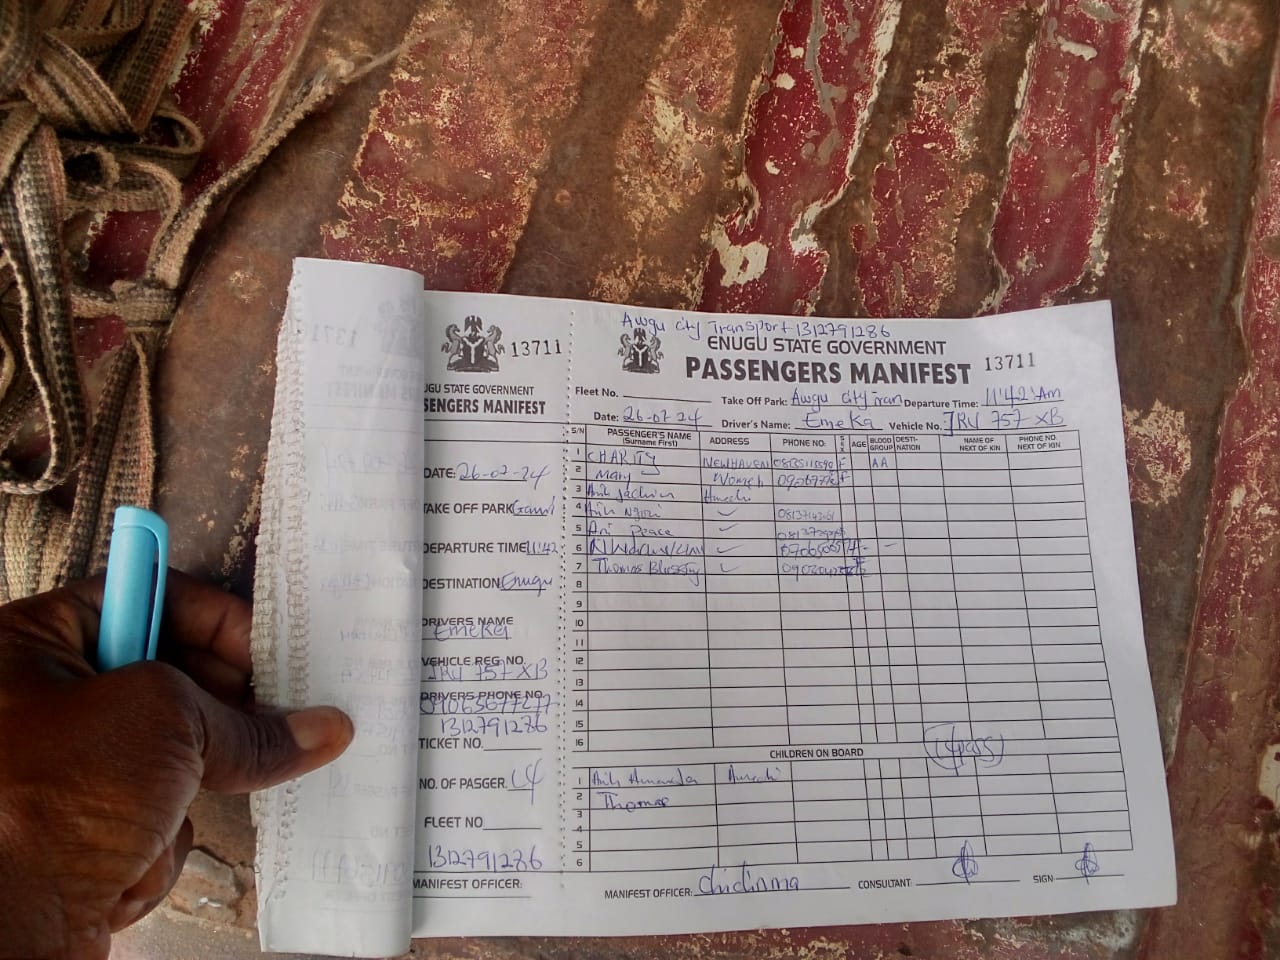 13711
UGU STATE GOVERNMENT
SENGERS MANIFEST
DATE: 26-07-24
TAKE OFF PARK
DEPARTURE TIME 11:42
DESTINATION Enugu
DRIVERS NAME
Emeka
VEHICLE REG NO.
JRV 757 XB
DRIVERS PHONE NO.
09063677277
1312791286
TICKET NO.
NO. OF PASGER. 14
FLEET NO
1312791286
MANIFEST OFFICER:
Awgu city Transport 1312791286
ENUGU STATE GOVERNMENT
PASSENGERS MANIFEST 13711
Fleet No. Take Off Park: Awgu city tran Departure Time: 11:42 Am
Date: 26-07-24 Driver's Name: Emeka Vehicle No. JRV 757 XB
S/N PASSENGER'S NAME (Surname First) ADDRESS PHONE NO: SEX AGE BLOOD GROUP DESTI-NATION NAME OF NEXT OF KIN PHONE NO. NEXT OF KIN
1 CHARITY NEWHAVEN F AA
2 Mary F
3 Anih Amechi
4 Anih Ngozi
5 Ani Peace
6
7 Thomas Blessing
8
9
10
11
12
13
14
15
16
CHILDREN ON BOARD
1 Anih Amanda Amechi
2 Thomas
3
4
5
6
MANIFEST OFFICER: Chidinma CONSULTANT: SIGN